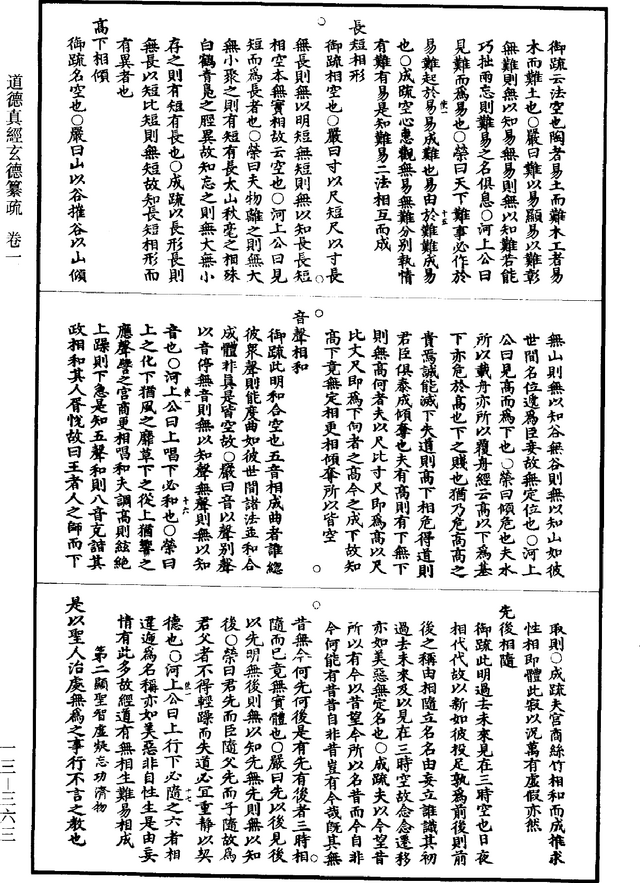 御疏云法空也陶者易土而難木工者易
木而難土也○嚴曰難以易顯易以難彰
無難則無以知易無易則無以知難若能
巧拙兩忘則難易之名俱息○河上公曰
見難而為易也○榮曰天下難事必作於
易難起於易易成難也易由於難難成易
也○成疏空心慧觀無易無難分別執情
有難有易是知難易二法相互而成
長短相形
御疏相空也○嚴曰寸以尺短尺以寸長
無長則無以明短無短則無以知長長短
相空本無實相故云空也○河上公曰見
短而為長者也○榮曰夫物離之則無大
無小聚之則有短有長太山秋毫之相殊
白鶴青鳧之脛異故知忘之則無大無小
存之則有短有長也○成疏以長形長則
無長以短比短則無短故知長短相形而
有異者也
高下相傾
御疏名空也○嚴曰山以谷摧谷以山傾
無山則無以知谷無谷則無以知山如彼
世間名位遞為臣妾故無定位也○河上
公曰見高而為下也○榮曰傾危也夫水
所以載舟亦所以覆舟經云高以下為基
下亦危於高也下之賤也猶乃危高高之
貴焉誠能滅下失道則高下相危得道則
君臣俱泰成傾奪也夫有高則有下無下
則無高何者夫以尺比寸尺即為高以尺
比丈尺即為下向者之高今之成下故知
高下竟無定相更相傾奪所以皆空
音聲相和
御疏此明和合空也五音相成曲者誰總
彼眾聲則能度曲如彼世間諸法並和合
成體非真是皆空故○嚴曰音以聲別聲
以音停無音則無以知聲無聲則無以知
音也○河上公曰上唱下必和也○榮曰
上之化下猶風之靡草下之從上猶響之
應聲譬之宮商更相唱和夫調高則絃絕
上躁則下急是知五聲和則八音克諧其
政相和其人胥悅故曰王者人之師而下
取則○成疏夫宮商絲竹相和而成推求
性相即體此寂以況萬有虛假亦然
先後相隨
御疏此明過去未來見在三時空也日夜
相代代故以新如彼投足孰為前後則前
後之稱由相隨立名名由妄立誰識其初
過去未來及以見在三時空故念念遷移
亦如美惡無定名也○成疏夫以今望昔
所以有今以昔望今所以名昔而今自非
今何能有昔昔自非昔豈有今哉既其無
昔無今何先何後是有先有後者三時相
隨而已竟無實體也○嚴曰先以後見後
以先明無後則無以知先無先則無以知
後○榮曰君先而臣隨父先而子隨故為
君父者不得輕躁而失道必宜重靜以契
德也○河上公曰上行下必隨之六者相
違遞為名稱亦如美惡非自性生是由妄
情有此多故經道有無相生難易相成
第二顯聖智虛疑忘功濟物
是以聖人治處無為之事行不言之教也
道德真經玄德纂疏 卷一
一三—三六三